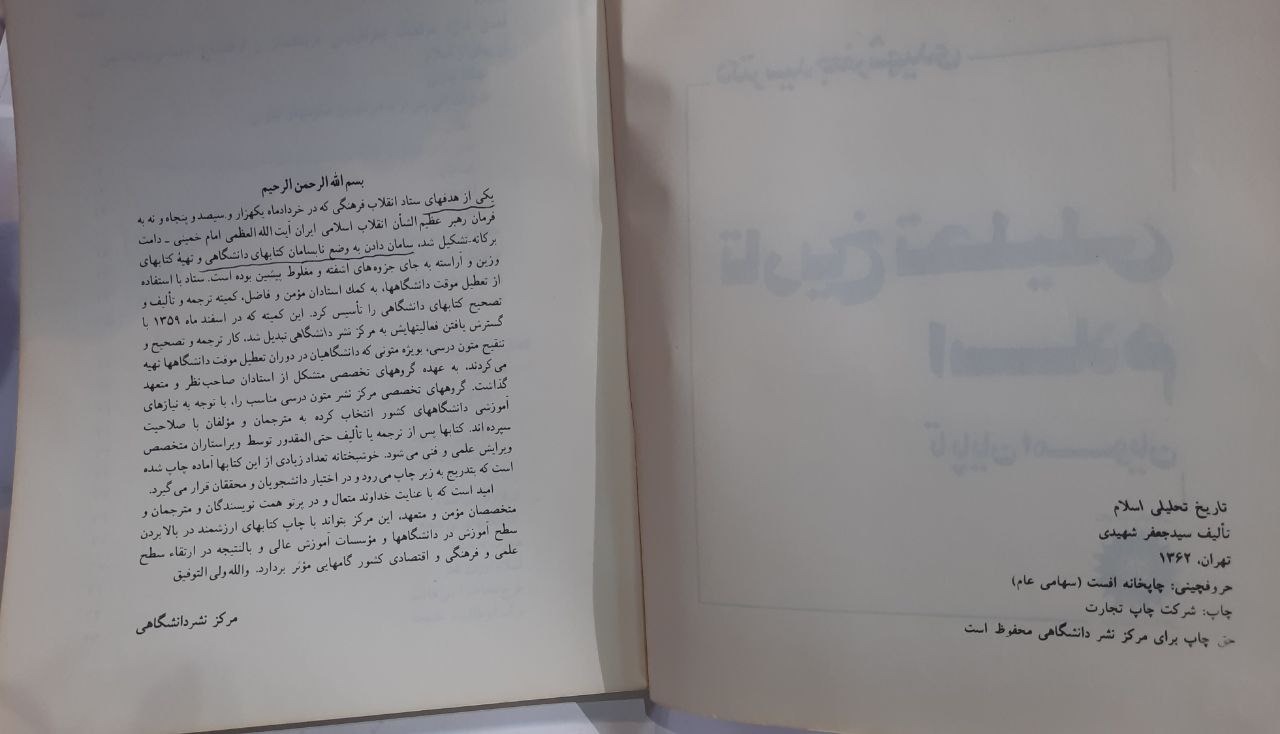 تاریخ تحلیلی اسلام
تألیف سیدجعفر شهیدی
تهران، ۱۳۶۲
حروفچینی: چاپخانه افست (سهامی عام)
چاپ: شرکت چاپ تجارت
حق چاپ برای مرکز نشر دانشگاهی محفوظ است
بسم الله الرحمن الرحیم
یکی از هدفهای ستاد انقلاب فرهنگی که در خردادماه یکهزار و سیصد و پنجاه و نه به
فرمان رهبر عظیم الشأن انقلاب اسلامی ایران آیت الله العظمی امام خمینی ـ دامت
برکاته ـ تشکیل شد، سامان دادن به وضع نابسامان کتابهای دانشگاهی و تهیهٔ کتابهای
وزین و آراسته به جای جزوه‌های آشفته و مغلوط پیشین بوده است. ستاد با استفاده
از تعطیل موقت دانشگاهها، به کمك استادان مؤمن و فاضل، کمیته ترجمه و تألیف و
تصحیح کتابهای دانشگاهی را تأسیس کرد. این کمیته که در اسفند ماه ۱۳۵۹ با
گسترش یافتن فعالیتهایش به مرکز نشر دانشگاهی تبدیل شد، کار ترجمه و تصحیح و
تنقیح متون درسی، بویژه متونی که دانشگاهیان در دوران تعطیل موقت دانشگاهها تهیه
می‌کردند، به عهده گروههای تخصصی متشکل از استادان صاحب‌نظر و متعهد
گذاشت. گروههای تخصصی مرکز نشر متون درسی مناسب را، با توجه به نیازهای
آموزشی دانشگاههای کشور انتخاب کرده به مترجمان و مؤلفان با صلاحیت
سپرده اند. کتابها پس از ترجمه یا تألیف حتی المقدور توسط ویراستاران متخصص
ویرایش علمی و فنی می‌شود. خوشبختانه تعداد زیادی از این کتابها آماده چاپ شده
است که بتدریج به زیر چاپ می‌رود و در اختیار دانشجویان و محققان قرار می‌گیرد.
امید است که با عنایت خداوند متعال و در پرتو همت نویسندگان و مترجمان و
متخصصان مؤمن و متعهد، این مرکز بتواند با چاپ کتابهای ارزشمند در بالابردن
سطح آموزش در دانشگاهها و مؤسسات آموزش عالی و بالنتیجه در ارتقاء سطح
علمی و فرهنگی و اقتصادی کشور گامهایی مؤثر بردارد. والله ولی التوفیق
مرکز نشردانشگاهی